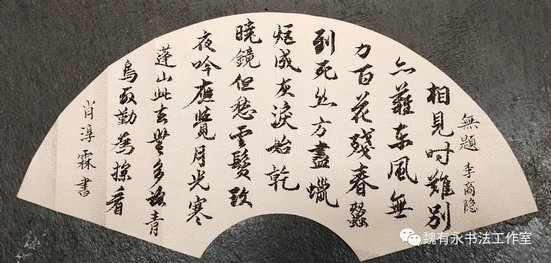 無題 李商隐
相見时難别
亦難东風無
力百花殘春蠶
到死丝方盡蠟
炬成灰淚始乾
曉鏡但愁云鬓改
夜吟應覺月光寒
蓬山此去無多路青
鳥殷勤為探看
肖淳霖書
魏有永书法工作室